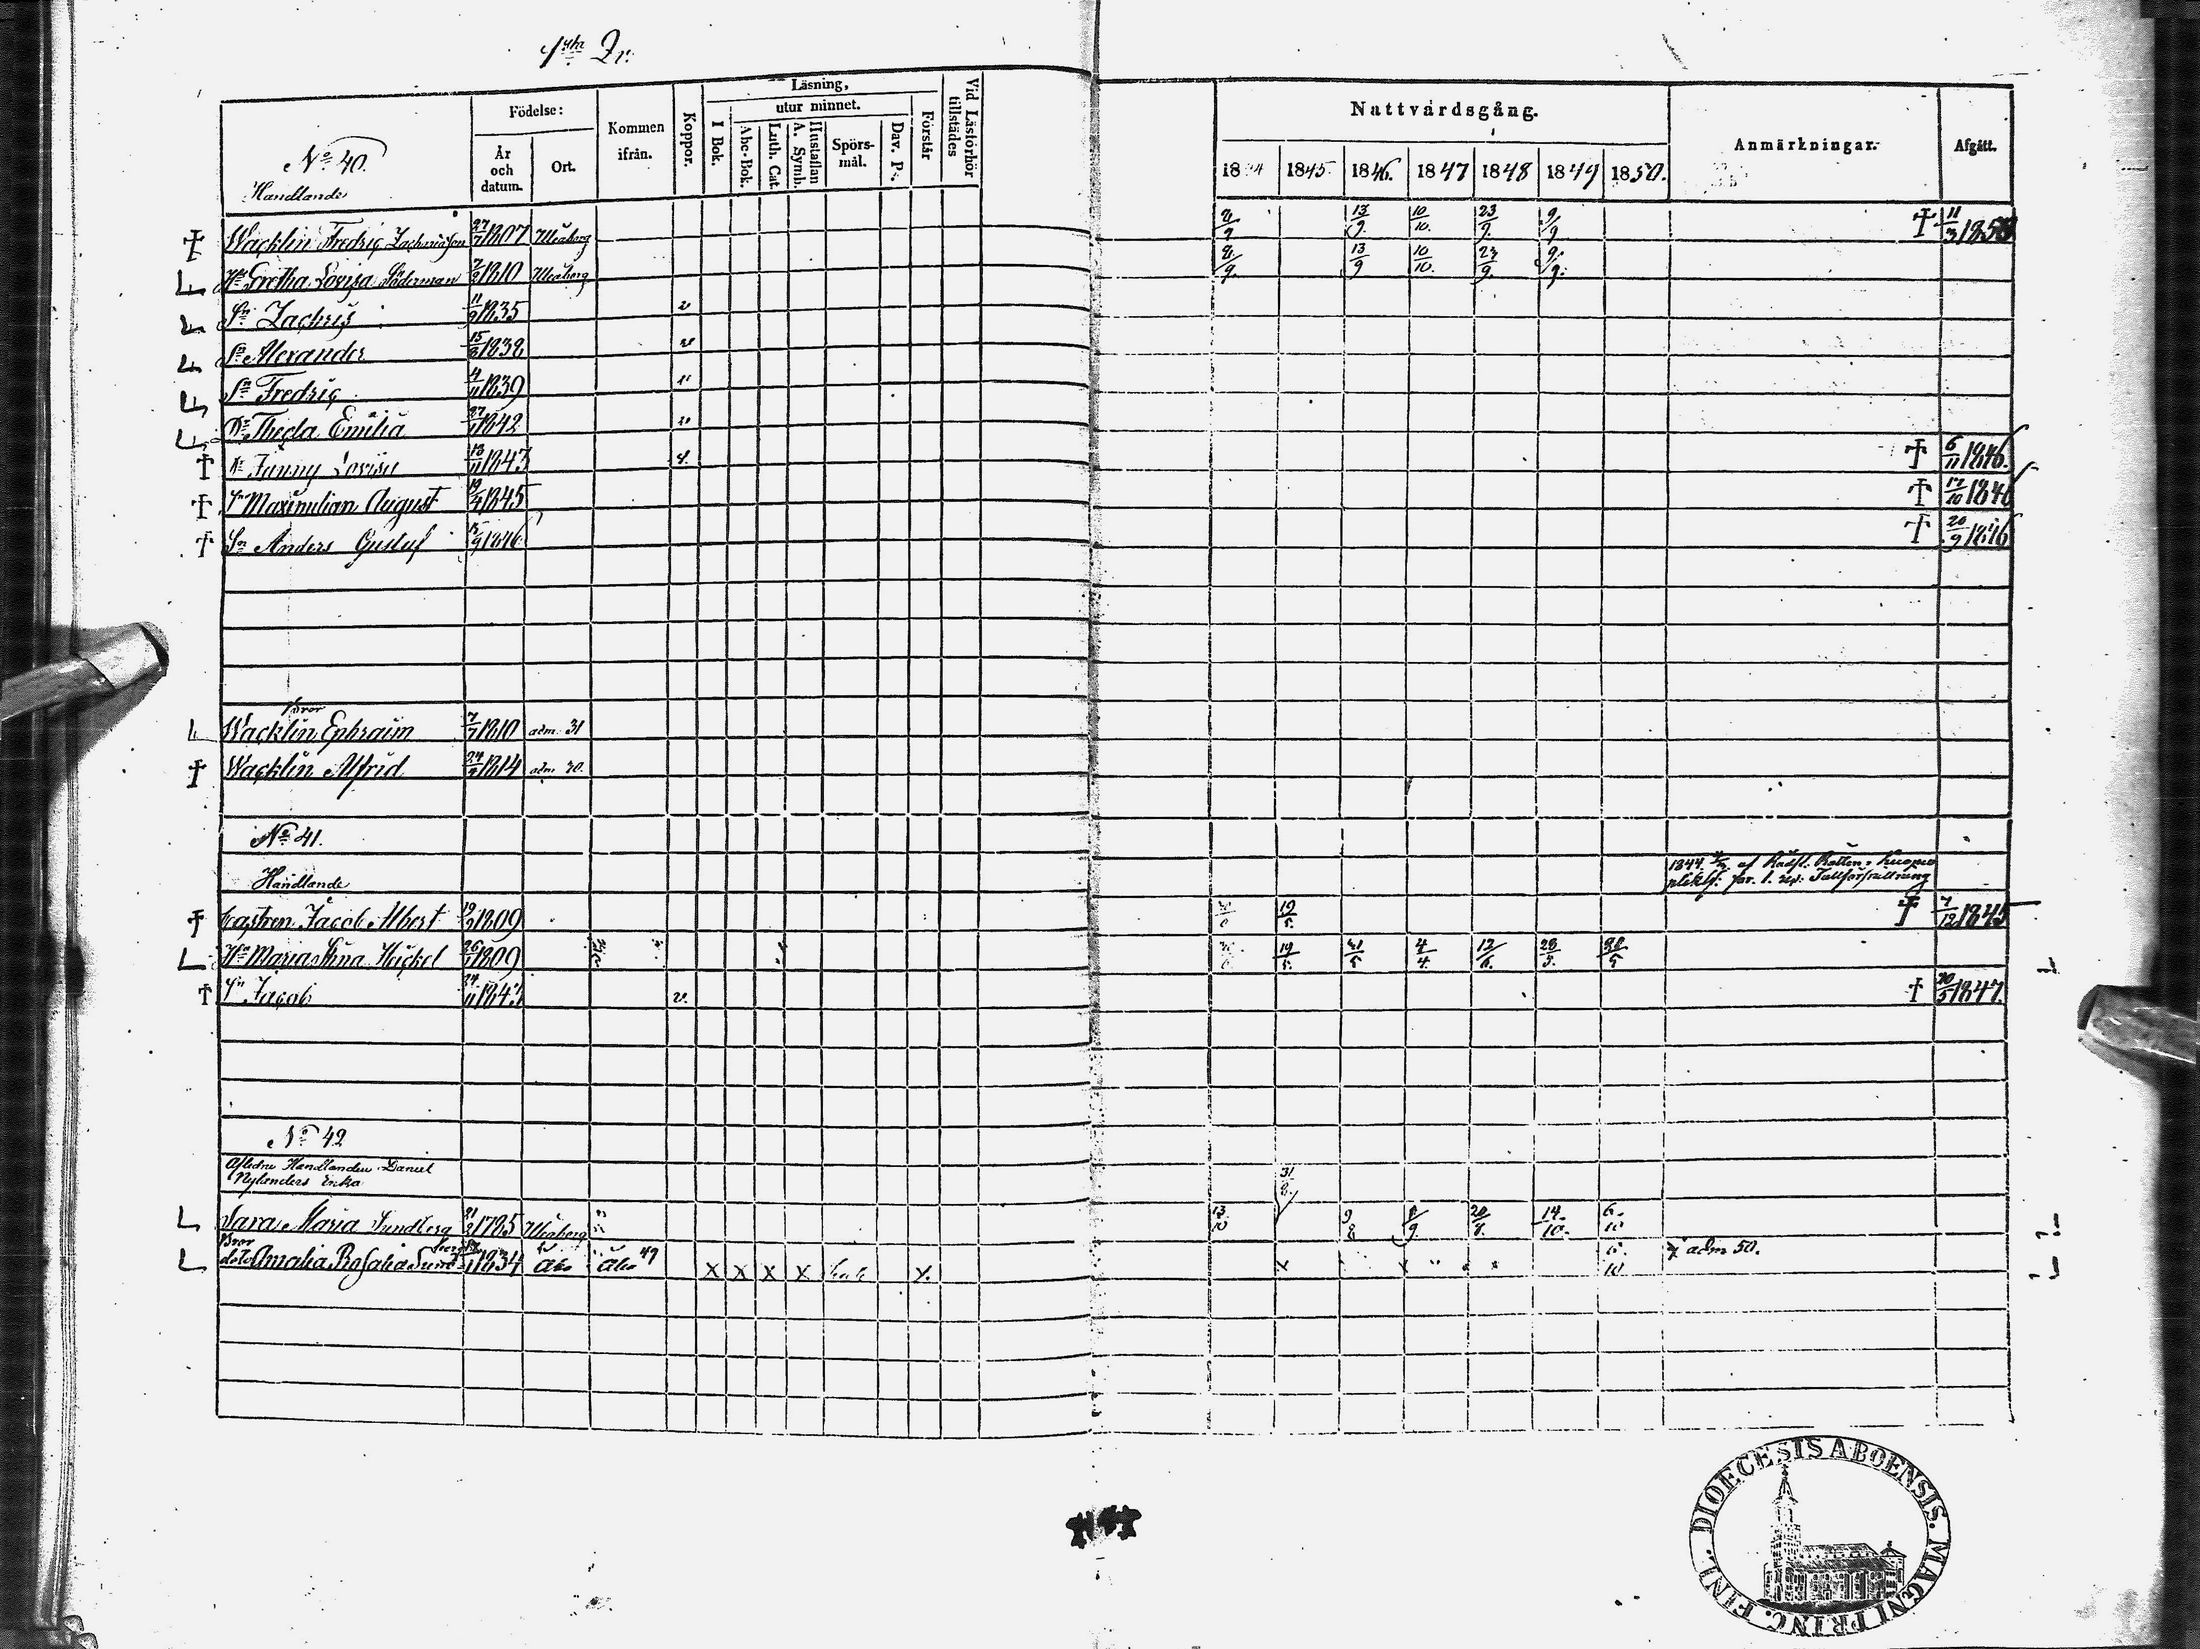 1sta Qr.
No 40.
Handlande
Födelse:
År och datum.
Ort.
Kommen ifrån.
Koppor.
Läsning,
utur minnet.
I Bok.
Abc-Bok.
Luth. Cat.
Hustaflan A. Symb.
Spörs-mål.
Dav. Ps.
Förstår
Vid Läsförhör tillstädes
Nattvardsgång.
1844 1845. 1846. 1847 1848 1849 1850.
Anmärkningar.
Afgått.
† Wacklin Fredric Zachariasson 27/7 1807 Uleåborg 13/9 10/10. 23/9. 9/9 † 11/3 1850
Hu Gretha Lovisa Söderman 7/9 1810 Uleåborg 13/9 10/10. 23/9. 9/9.
Sn Zachris 11/9 1835 v
Sn Alexander 15/8 1838 v
Sn Fredric 4/11 1839 v
Dr Thecla Emilia 27/1 1842 v
† Dr Fanny Lovisa 18/11 1843 v. † 6/11 1846.
† Sn Maximilian August 19/4 1845 † 17/10 1846
† Sn Anders Gustaf 15/9 1846 † 20/9 1846
Bror
Wacklin Ephraim 7/7 1810 adm. 31
† Wacklin Alfrid 24/9 1814 adm. 30.
No 41.
Handlande
† Castren Jacob Albert 19/9 1809 19/5. † 7/12 1845
Hu Maria Stina Heickel 26/1 1809 19/5. 31/5 4/4. 12/6. 28/5.
† Sn Jacob 24/11 1843 v. † 30/5 1847.
No 42
Aflidne Handlanden Daniel
Nylanders Enka
31/8.
Sara Maria Sundberg 21/2 1785 Uleåborg 13/10 9/8 20/8. 14/10. 6/10
Bror
dotr Amalia Rosalia Sundberg 1834 Åbo Åbo 49 X X X X X. 6/10 adm 50.
DIOECESIS ABOENSIS. MAGNI PRINC. FINL.